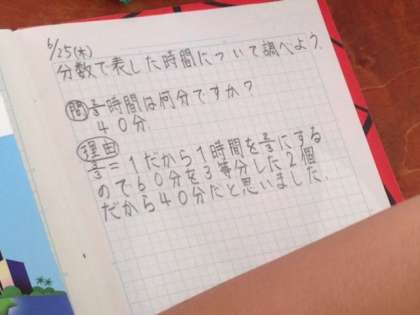 6/25(木)
分数で表した時間について調べよう。
問 2/3時間は何分ですか?
40分
理由
3/3=1だから1時間を3/3にする
ので60分を3等分した2個
だから40分だと思いました。